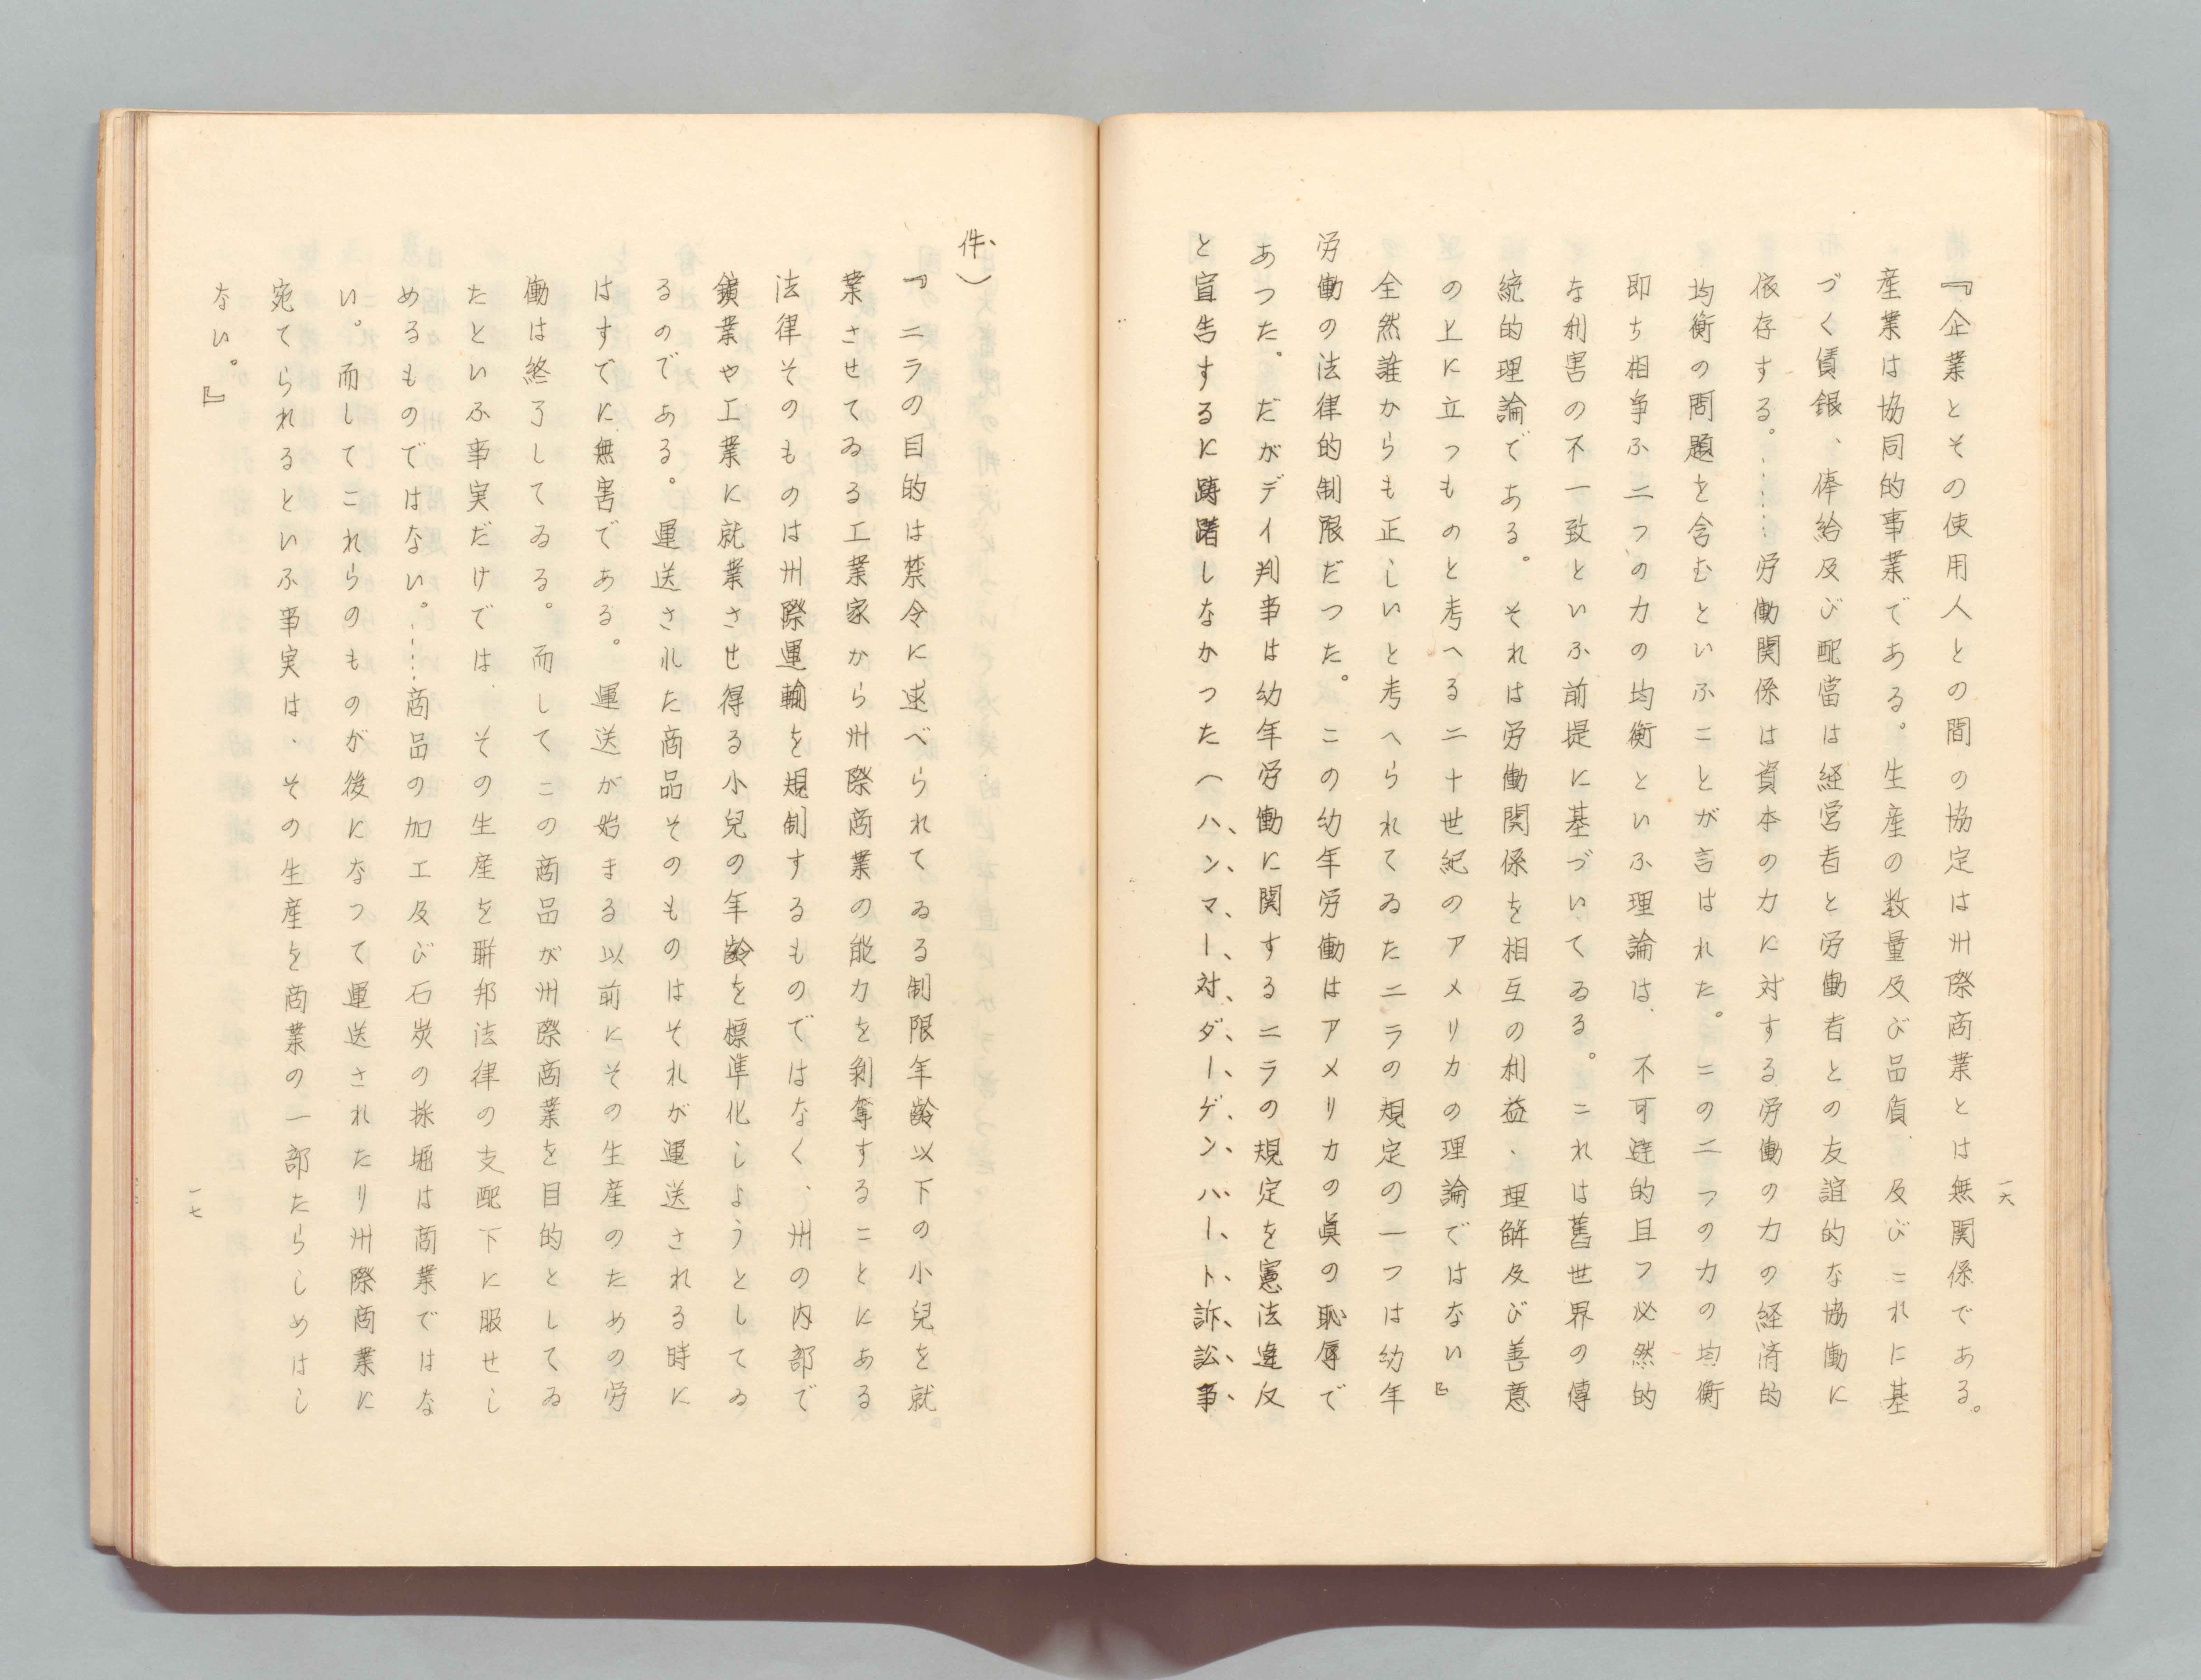 『企業とその使用人との間の協定は州際商業とは無関係である。
産業は協同的事業である。生産の数量及び品質、及びこれに基
づく賃銀、俸給及び配當は経営者と労働者との友誼的な協働に
依存する。……労働関係は資本の力に対する労働の力の経済的
均衡の問題を含むといふことが言はれた。この二つの力の均衡
即ち相争ふ二つの力の均衡といふ理論は、不可避的且つ必然的
な利害の不一致といふ前提に基づいてゐる。これは舊世界の傳
統的理論である。それは労働関係を相互の利益、理解及び善意
の上に立つものと考へる二十世紀のアメリカの理論ではない』
全然誰からも正しいと考へられてゐたニラの規定の一つは幼年
労働の法律的制限だつた。この幼年労働はアメリカの眞の恥辱で
あつた。だがデイ判事は幼年労働に関するニラの規定を憲法違反
と宣告するに躊躇しなかつた（ハンマー対ダーゲンハート訴訟事
一六
件）
『ニラの目的は禁令に述べられてゐる制限年齢以下の小兒を就
業させてゐる工業家から州際商業の能力を剥奪することにある。
法律そのものは州際運輸を規制するものではなく、州の内部で
鑛業や工業に就業させ得る小兒の年齢を標準化しようとしてゐ
るのである。運送された商品そのものはそれが運送される時に
はすでに無害である。運送が始まる以前にその生産のための労
働は終了してゐる。而してこの商品が州際商業を目的としてゐ
たといふ事実だけでは、その生産を聯邦法律の支配下に服せし
めるものではない。……商品の加工及び石炭の採堀は商業ではな
い。而してこれらのものが後になつて運送されたり州際商業に
宛てられるといふ事実は、その生産を商業の一部たらしめはし
ない。』
一七